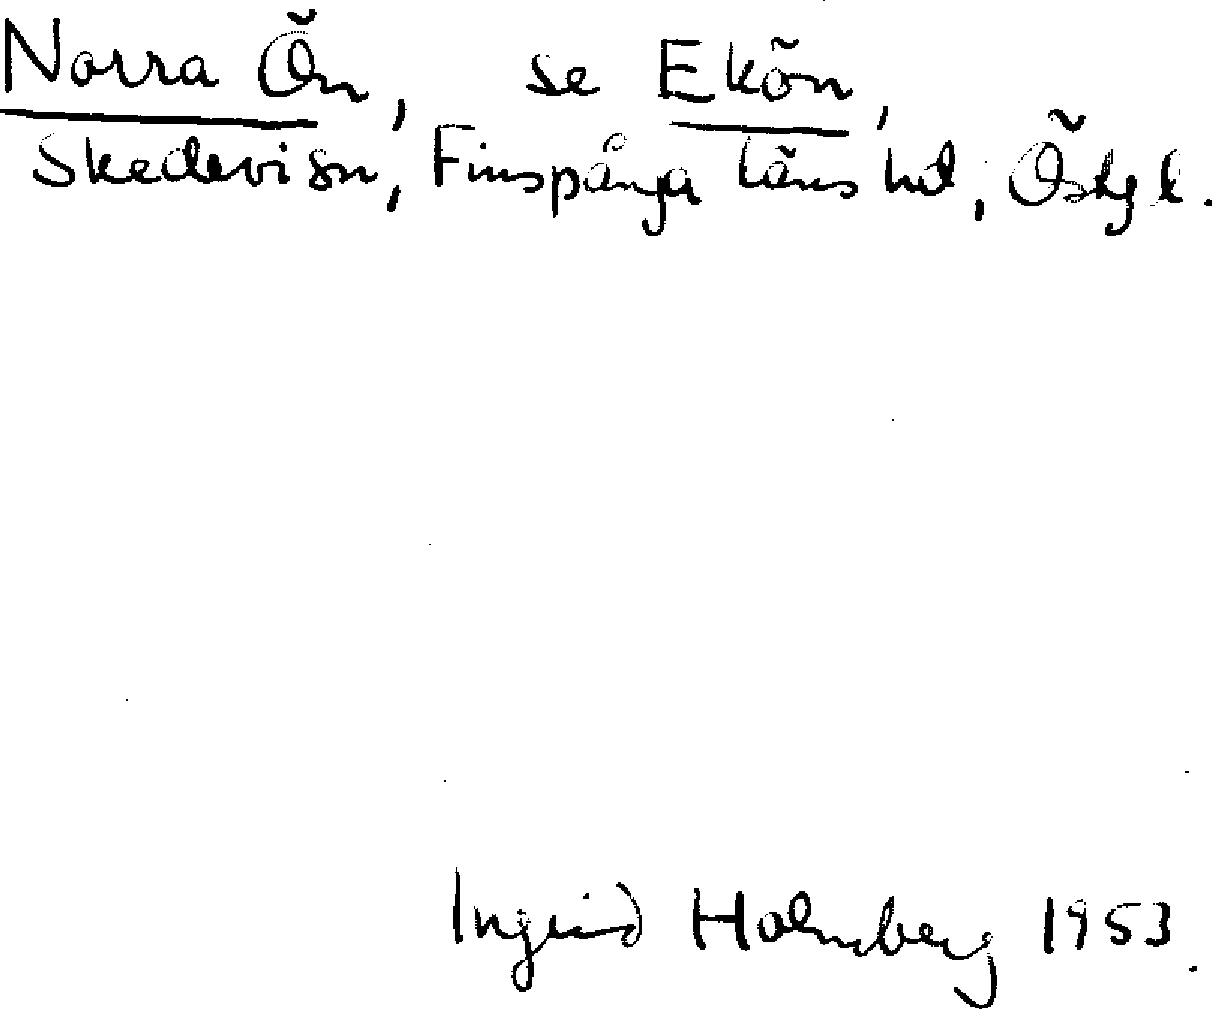 Norra Ön, se Ekön,
Skedevi sn, Finspånga läns hd, Östgl.
Ingrid Holmberg 1953.